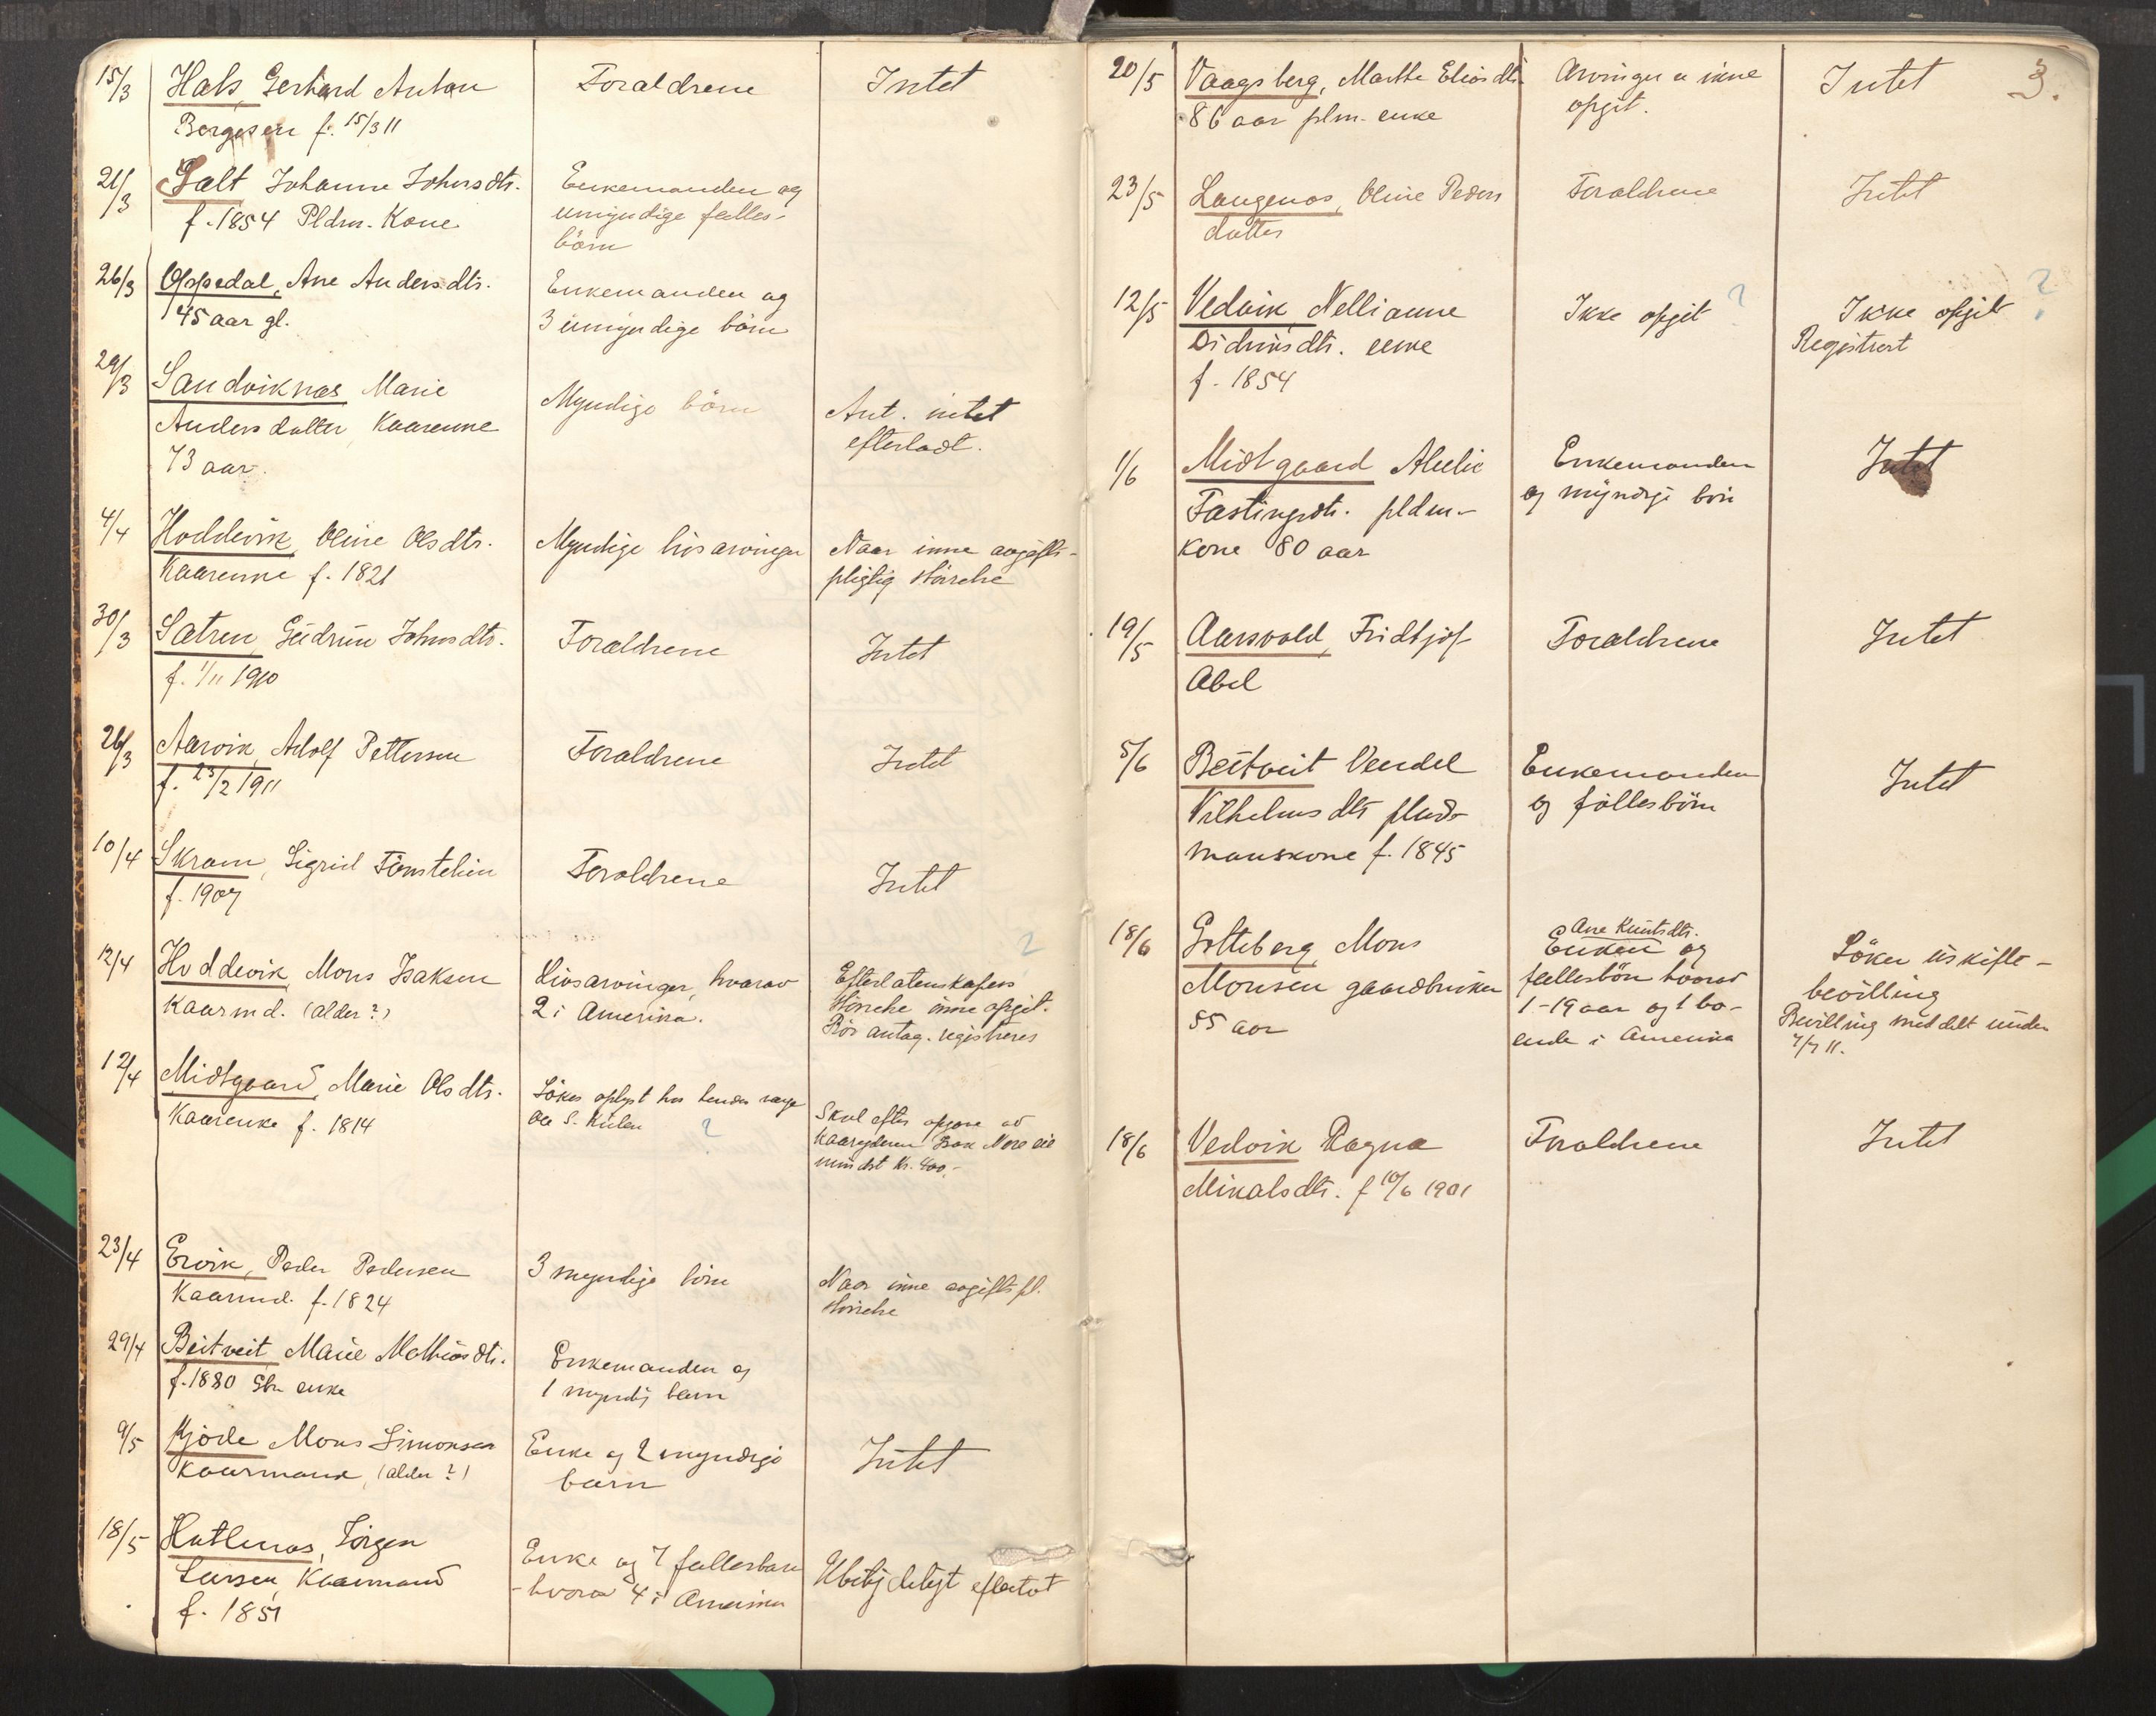 15/3 Hals, Gerhard Anton Foraldrene Intet
Borgesen f. 15/3 11
21/3 Galt Johanne Johnsdtr. Enkemanden og
f. 1854 Pldm. Kone umyndige fælles-
börn
26/3 Ospedal, Ane Andersdtr. Enkemanden og
45 aar gl. 3 umyndige börn
29/3 Sandviknæs Marie Myndige börn Ant. intet
Andersdatter Kaarenke efterladt.
73 aar.
4/4 Hoddevik, Oline Olsdtr. Myndige livsarvinger Naar ikke avgifts-
Kaarenke f. 1821 pligtig störrelse
30/3 Sætren, Gudrun Johnsdtr. Foraldrene Intet
f. 1/11 1910
26/3 Aarvik, Adolf Pettersen Foraldrene Intet
f. 23/2 1911
10/4 Skram, Sigrid Foraldrene Intet
f. 1907
12/4 Hoddevik, Mons Isaksen Livsarvinger, hvorav Efterlatenskapens
Kaarmd. (alder?) 2 i Amerika. störrelse ikke opgit.
Bör antag. registreres
12/4 Midtgaard, Marie Olsdtr. Sökes oplyst hos hendes verge Skal efter opgave av
Kaarenke f. 1814 Ole S. Kulen ? kaaryderen Isak More eie
mindst Kr. 400,-
23/4 Ervik, Peder Pedersen 3 myndige börn Naar ikke avgiftspl.
Kaarmd. f. 1824 störrelse
29/4 Beitveit, Marie Mathiasdtr. Enkemanden og
f. 1880 Gbr. enke 1 myndig barn
9/5 Kjöde Mons Simonsen Enke og 2 myndige Intet
Kaarmand, (alder?) barn
18/5 Hatlenæs, Jörgen Enke og 7 fællesbarn Ubetydeligt efterlat
Larsen, Kaarmand - hvorav 4 i Amerika
f. 1851
3.
20/5 Vaagsberg, Marthe Eliasdtr. Arvinger er ikke Intet
86 aar plm. enke opgit.
23/5 Langenæs, Oline Peders Foraldrene Intet
datter
12/5 Vedvik Nellianne Ikke opgit ? Ikke opgit ?
Didriksdtr. enke Registrert
f. 1854
1/6 Midtgaard Alulie Enkemanden Intet
Fastingsdtr. pldm.- og myndige börn
Kone 80 aar
19/5 Aarsvold, Fridtjof Foraldrene Intet
Abel
5/6 Beitveit Vendel Enkemanden Intet
Vilhelmsdtr plads og fællesbörn
manskone f. 1845
18/6 Golteberg, Mons Ane Knutsdtr. Enken og Söker uskifte-
Monsen gaardbruker fællesbörn hvorav bevilling
55 aar 1 - 19 aar og 1 bo- Bevilling meddelt under
ende i Amerika 7/7 11.
18/6 Vedvik Ragna Foraldrene Intet
Mikalsdtr. f 10/6 1901